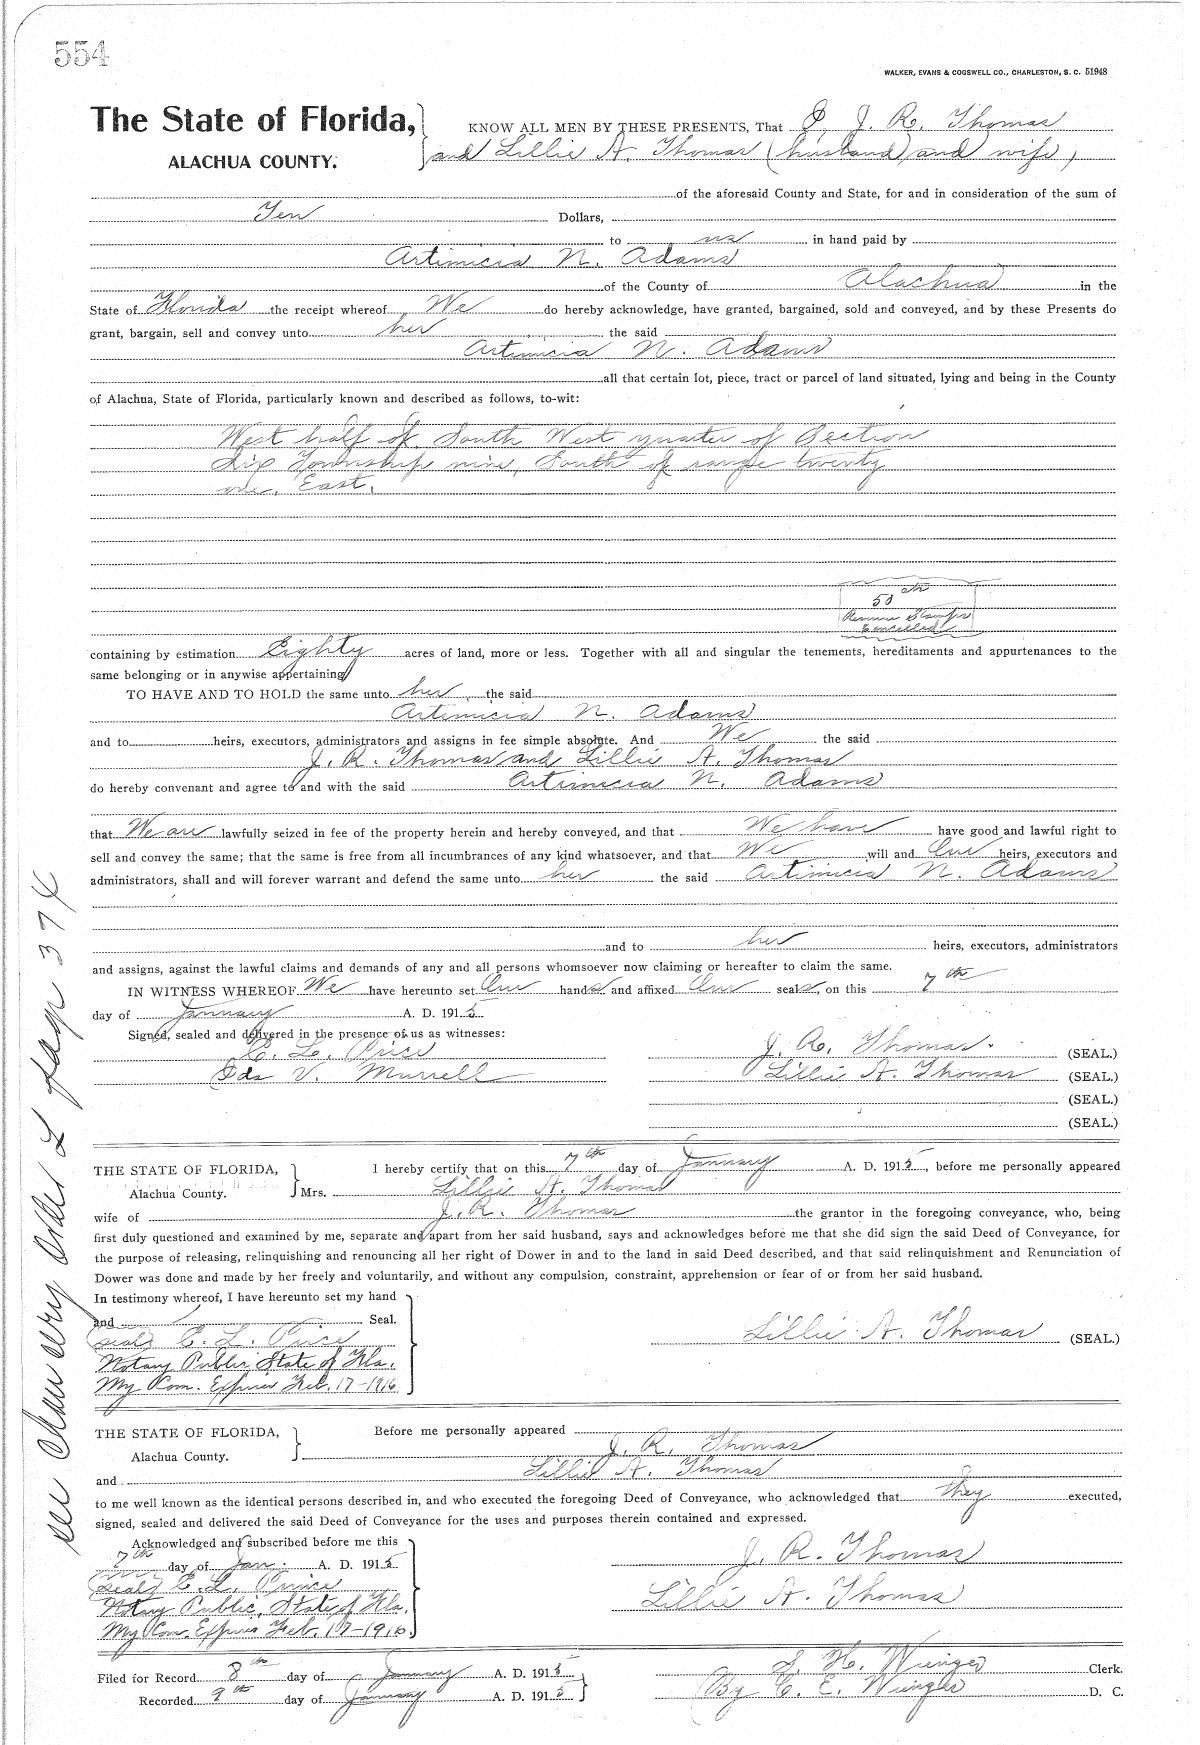 554
WALKER, EVANS & COGSWELL CO., CHARLESTON, S. C. 51948
The State of Florida, KNOW ALL MEN BY THESE PRESENTS, That I, J. R. Thomas
ALACHUA COUNTY. and Lillie A. Thomas (husband and wife)
of the aforesaid County and State, for and in consideration of the sum of
Ten Dollars,
to us in hand paid by
Artimicia N. Adams
of the County of Alachua in the
State of Florida the receipt whereof We do hereby acknowledge, have granted, bargained, sold and conveyed, and by these Presents do
grant, bargain, sell and convey unto her the said
Artimicia N. Adams
all that certain lot, piece, tract or parcel of land situated, lying and being in the County
of Alachua, State of Florida, particularly known and described as follows, to-wit:
West half of South West quarter of Section
Six Township nine, South of range twenty
one, East.
50 cts
Revenue Stamps
Cancelled
containing by estimation Eighty acres of land, more or less. Together with all and singular the tenements, hereditaments and appurtenances to the
same belonging or in anywise appertaining
TO HAVE AND TO HOLD the same unto her the said
Artimicia N. Adams
and to heirs, executors, administrators and assigns in fee simple absolute. And We the said
J. R. Thomas and Lillie A. Thomas
do hereby convenant and agree to and with the said Artimicia N. Adams
that We are lawfully seized in fee of the property herein and hereby conveyed, and that We have have good and lawful right to
sell and convey the same; that the same is free from all incumbrances of any kind whatsoever, and that We will and Our heirs, executors and
administrators, shall and will forever warrant and defend the same unto her the said Artimicia N. Adams
and to her heirs, executors, administrators
and assigns, against the lawful claims and demands of any and all persons whomsoever now claiming or hereafter to claim the same.
IN WITNESS WHEREOF We have hereunto set Our hands and affixed Our seals, on this 7th
day of January A. D. 1915
Signed, sealed and delivered in the presence of us as witnesses:
C. L. Price J. R. Thomas. (SEAL.)
Ida V. Murrell Lillie A. Thomas (SEAL.)
(SEAL.)
(SEAL.)
THE STATE OF FLORIDA, I hereby certify that on this 7th day of January A. D. 1915, before me personally appeared
Alachua County. Mrs. Lillie A. Thomas
wife of J. R. Thomas the grantor in the foregoing conveyance, who, being
first duly questioned and examined by me, separate and apart from her said husband, says and acknowledges before me that she did sign the said Deed of Conveyance, for
the purpose of releasing, relinquishing and renouncing all her right of Dower in and to the land in said Deed described, and that said relinquishment and Renunciation of
Dower was done and made by her freely and voluntarily, and without any compulsion, constraint, apprehension or fear of or from her said husband.
In testimony whereof, I have hereunto set my hand
and Seal.
(seal) C. L. Price Lillie A. Thomas (SEAL.)
Notary Public, State of Fla.
My Com. Expires Feb. 17-1916
THE STATE OF FLORIDA, Before me personally appeared
Alachua County. J. R. Thomas
and Lillie A. Thomas
to me well known as the identical persons described in, and who executed the foregoing Deed of Conveyance, who acknowledged that they executed,
signed, sealed and delivered the said Deed of Conveyance for the uses and purposes therein contained and expressed.
Acknowledged and subscribed before me this
7th day of Jan. A. D. 1915 J. R. Thomas
(seal) C. L. Price Lillie A. Thomas
Notary Public, State of Fla.
My Com. Expires Feb. 17-1916.
Filed for Record 8th day of January A. D. 1915 S. H. Wienges Clerk.
Recorded 9th day of January A. D. 1915 By C. E. Wienges D. C.
see Chancery Order L page 374